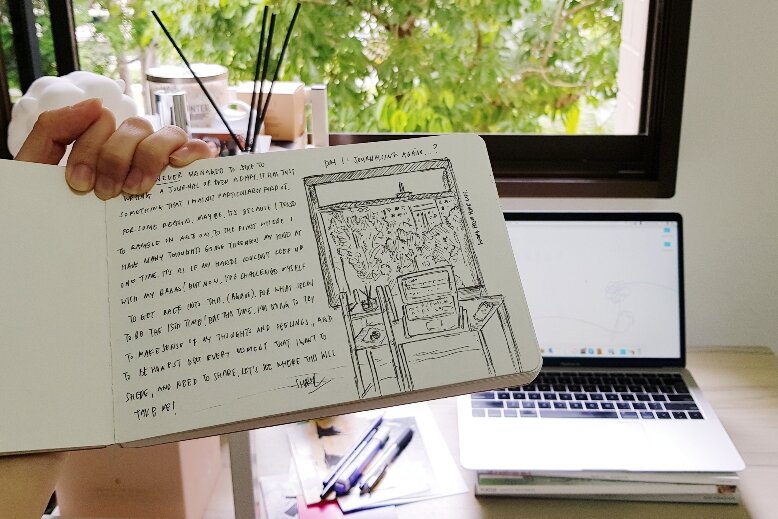 DAY 1: JOURNALING AGAIN..?
NEVER MANAGED TO STICK TO
WRITING A JOURNAL OR EVEN A DIARY. IT HAS JUST
SOMETHING THAT I WASN'T PARTICULARLY FOND OF.
FOR SOME REASON. MAYBE, IT'S BECAUSE I TEND
TO RAMBLE ON AND ON, TO THE POINT WHERE I
HAVE MANY THOUGHTS GOING THROUGH MY MIND AT
ONE TIME. IT'S AS IF MY HANDS COULDN'T KEEP UP
WITH MY BRAIN! BUT NOW, I'VE CHALLENGE MYSELF
TO GET BACK INTO THIS, (AGAIN). FOR WHAT SEEM
TO BE THE 15TH TIME! BUT THIS TIME, I'M GOING TO TRY
TO MAKE SENSE OF MY THOUGHTS AND FEELINGS, AND
TO BE HONEST ON EVERY THOUGHT THAT I WANT TO
SHARE, AND NEED TO SHARE. LET'S SEE WHERE THIS WILL
TAKE ME!